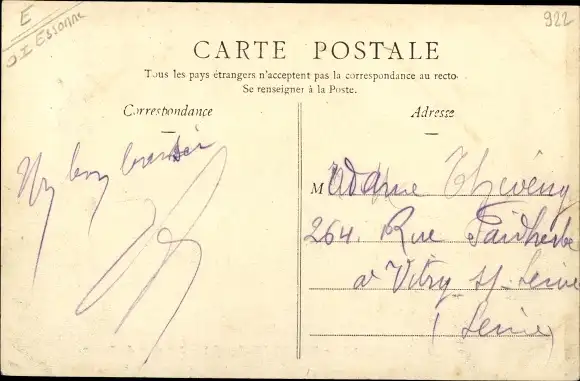 E
OI Essonne
922
CARTE POSTALE
Tous les pays étrangers n'acceptent pas la correspondance au recto.
Se renseigner à la Poste.
Correspondance
Un bon
Adresse
Madame Theveny
264, Rue Faidherbe
à Vitry s/ Seine
(Seine)